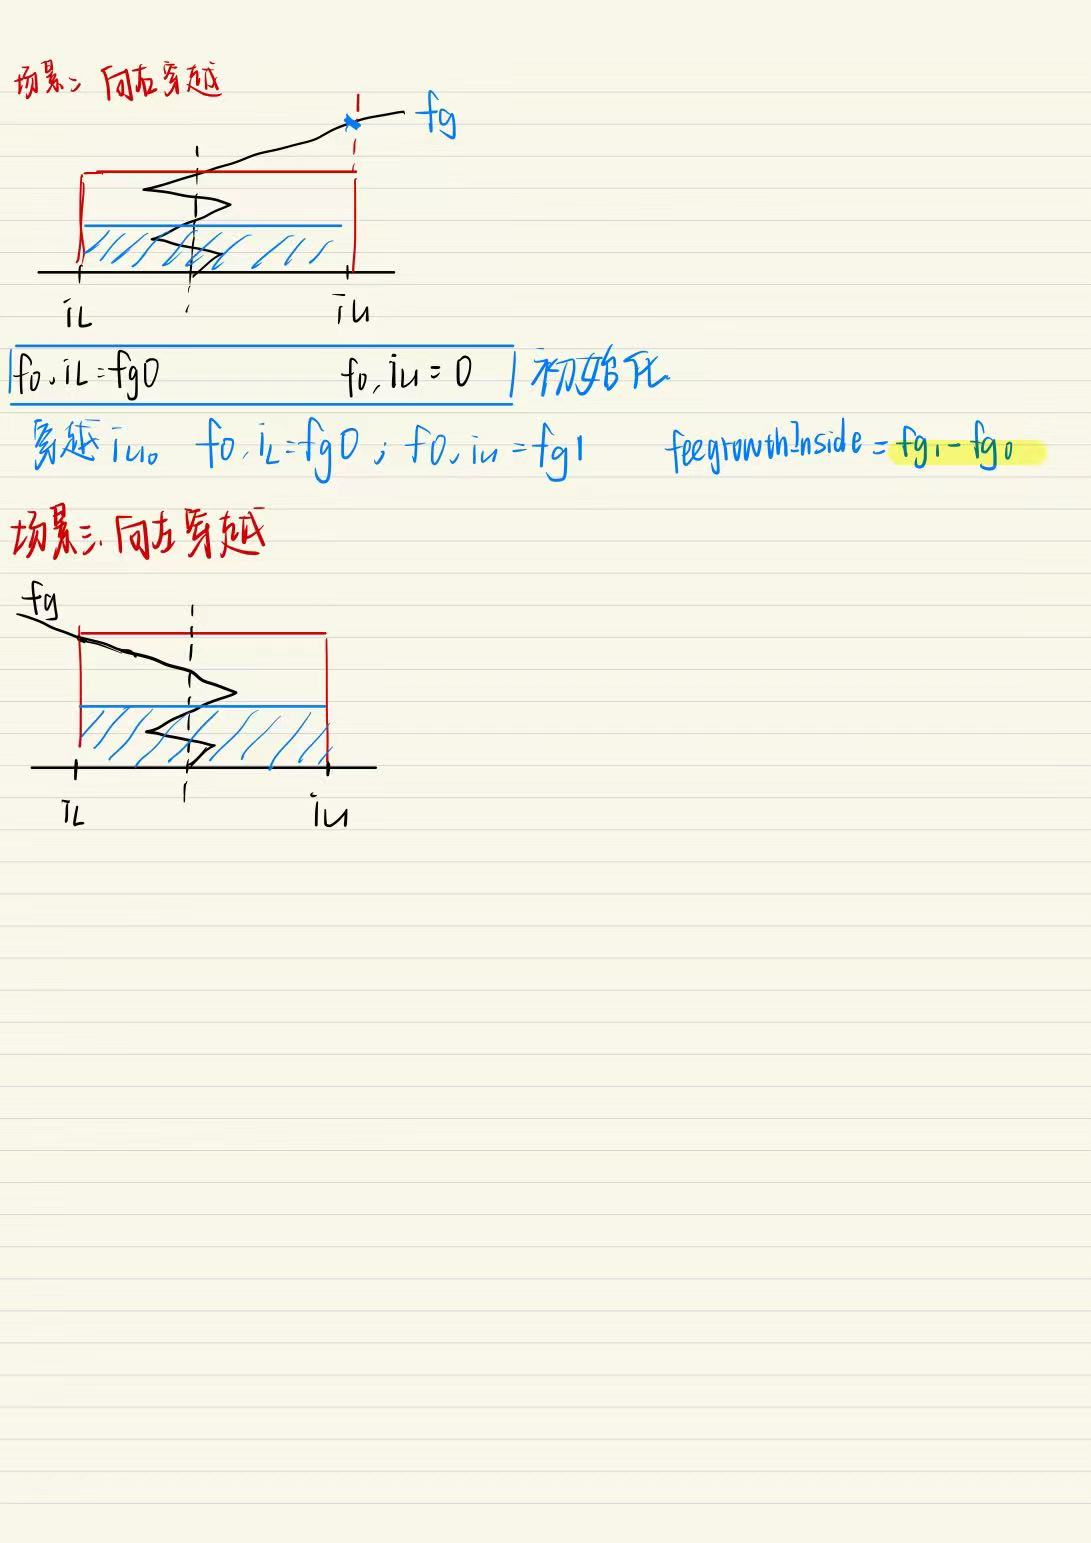 场景二 向右穿越
fg
iL iu
fo,iL=fg0 fo,iu=0 初始化
穿越iu。 fo,iL=fg0; fo,iu=fg1 feegrowthInside=fg1-fg0
场景三、向左穿越
fg
iL iu